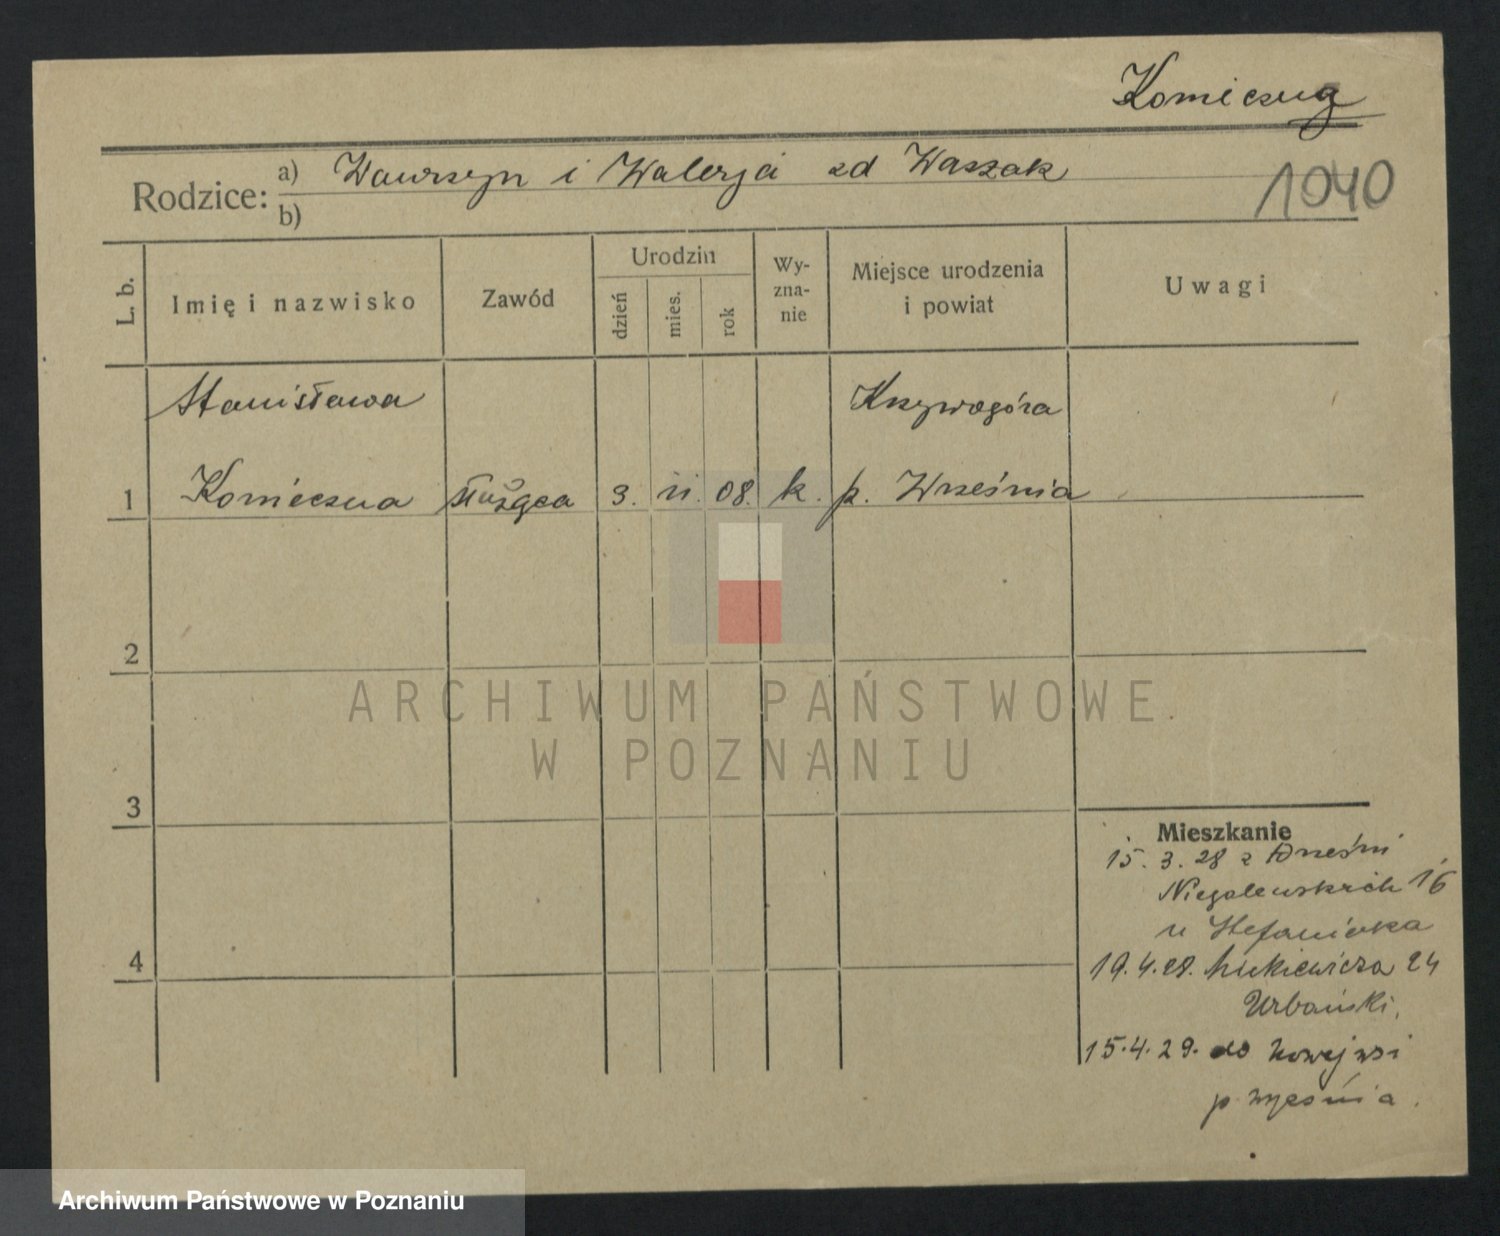 Konieczna
Rodzice: a) Wawrzyn i Walerja zd Waszak
b)
1040
L. b.
Imię i nazwisko
Zawód
Urodzin
dzień
mies.
rok
Wy-
zna-
nie
Miejsce urodzenia
i powiat
Uwagi
Stanisława Krzywagóra
1 Konieczna służąca 3. 11. 08. k. p. Września
2
3
4
Mieszkanie
15. 3. 28 z Wrześni
Niegolewskich 16
u Stefaniaka
19.4.28. 24
Urbański,
15.4.29. do Nowejwsi
p. Września.
ARCHIWUM PAŃSTWOWE
W POZNANIU
Archiwum Państwowe w Poznaniu